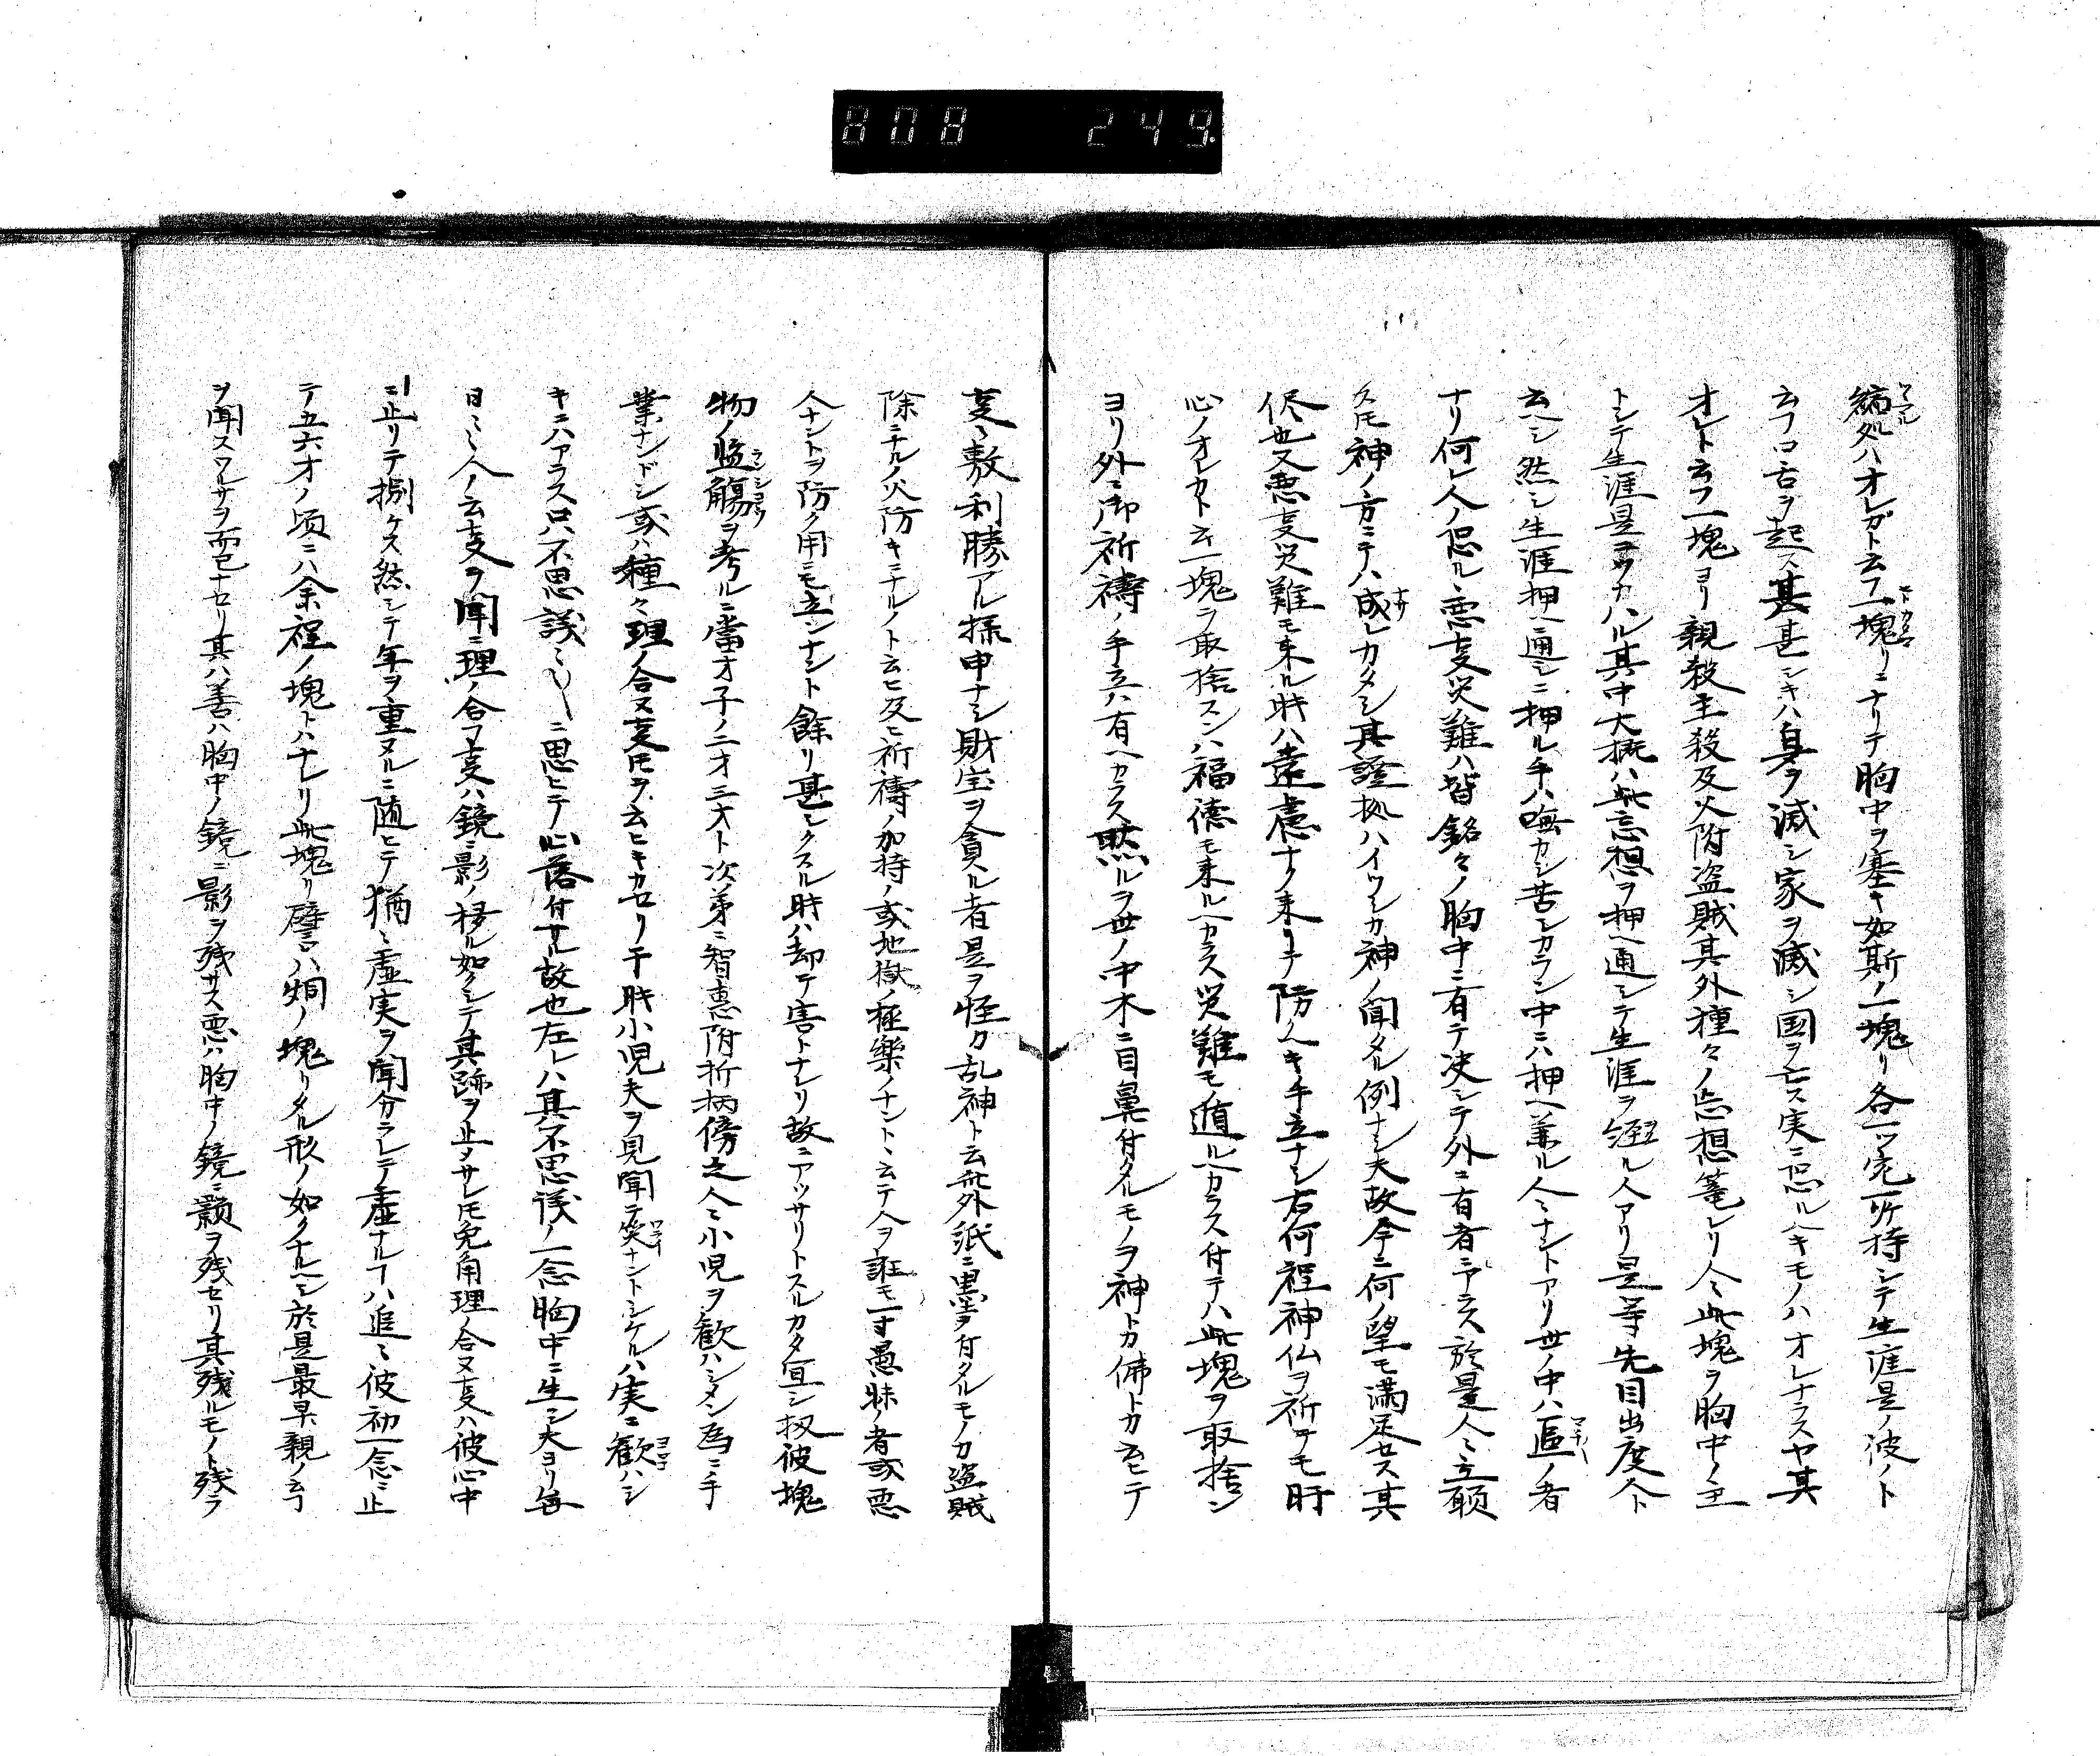 808 249
縮処ハオレガト云フ一塊リニナリテ胸中ヲ塞キ如斯ノ一塊リ各一ツ宛所持シテ生涯是ノ彼ノト
云フロ舌ヲ起ス其甚シキハ身ヲ滅シ家ヲ滅シ国ヲ亡ス実ニ恐ルヘキモノハオレナラスヤ其
オレト云フ一塊ヨリ親殺主殺及火附盗賊其外種々ノ忘想篭レリ人々此塊ヲ胸中ノ主
トシテ生涯是ヲウカハル其中大概ハ此忘想ヲ押ヘ通シテ生涯ヲ経ル人アリ是等先目出度人ト
云ヘシ然シ生涯押ヘ通シニ押ル手ハ嘸カシ苦シカラン中ニハ押ヘ兼ル人ミナントアリ世ノ中ハ區ノ者
ナリ何レ人ノ恐ルヽ悪支災難ハ皆銘々ノ胸中ニ有テ決シテ外ニ有者ニアラス於是人ミ立願
ストモ神ノ方ニテハ成レカタシ其證拠ハイツシカ神ノ聞タル例ナシ夫故今ニ何ノ望モ満足セス其
侭也又悪支災難モ来ル時ハ遠慮ナク来リテ防クヘキ手立ナシ右何程神仏ヲ祈テモ肝
心ノオレカト云一塊ヲ取捨スンハ福徳モ来ルヘカラス災難モ遁ルヘカラス付テハ此塊ヲ取捨ン
ヨリ外ニ御祈禱ノ手立ハ有ヘカラス黙ルヲ世ノ中木ニ目鼻付タルモノヲ神トカ佛トカ云ヒテ
支々敷利勝アル探申ナシ財宝ヲ貪ル者是ヲ怪力乱神ト云此外紙ニ墨ヲ付タルモノカ盗賊
除ニナルノ火防キニナルノト云ヒ及ヒ祈禱ノ加持ノ或地獄ノ極樂ノナントヽ云テ人ヲ誑モ一寸愚昧ノ者或悪
人ナントヲ防ク用ニモ立ンナント餘リ甚シクスル時ハ却テ害トナレリ故ニアッサリトスルカタ宜シ扨彼塊
物ノ監觴ヲ考ルニ當才子ノ二才三才ト次第ニ智惠附折柄傍之人ミ小児ヲ歓ハシメン為ニ手
業ナンドシ或ハ種々理ノ合又支トモヲ云ヒキカセリ干時小児夫ヲ見聞テ笑ナントシケルハ実ニ歓ハシ
キニハアラス只不思議ミ〱ニ思ヒテ心落付サル故也左レハ其不思議ノ一念胸中ニ生シ夫ヨリ毎
日ミ人ノ云支ヲ聞ニ理ノ合フ支ハ鏡ニ影ノ移ル如クシテ其跡ヲ止メサレトモ兔角理ノ合又支ハ彼心中
ニ止リテ捌ケス然シテ年ヲ重ヌルニ随ヒテ猶ミ虚実ヲ聞分ラレテ虚ナル丁ハ追ミ彼初一念ニ止
テ五六才ノ頃ニハ余程ノ塊トハナレリ此塊リ譬ハ炯ノ塊リタル形ノ如クナルヘシ於是最早親ノ云丁
ヲ聞スワルサヲ而已ナセリ其ハ善ハ胸中ノ鏡ニ影ヲ残サス悪ハ胸中ノ鏡ニ顕ヲ残セリ其残ルモノト残ラ